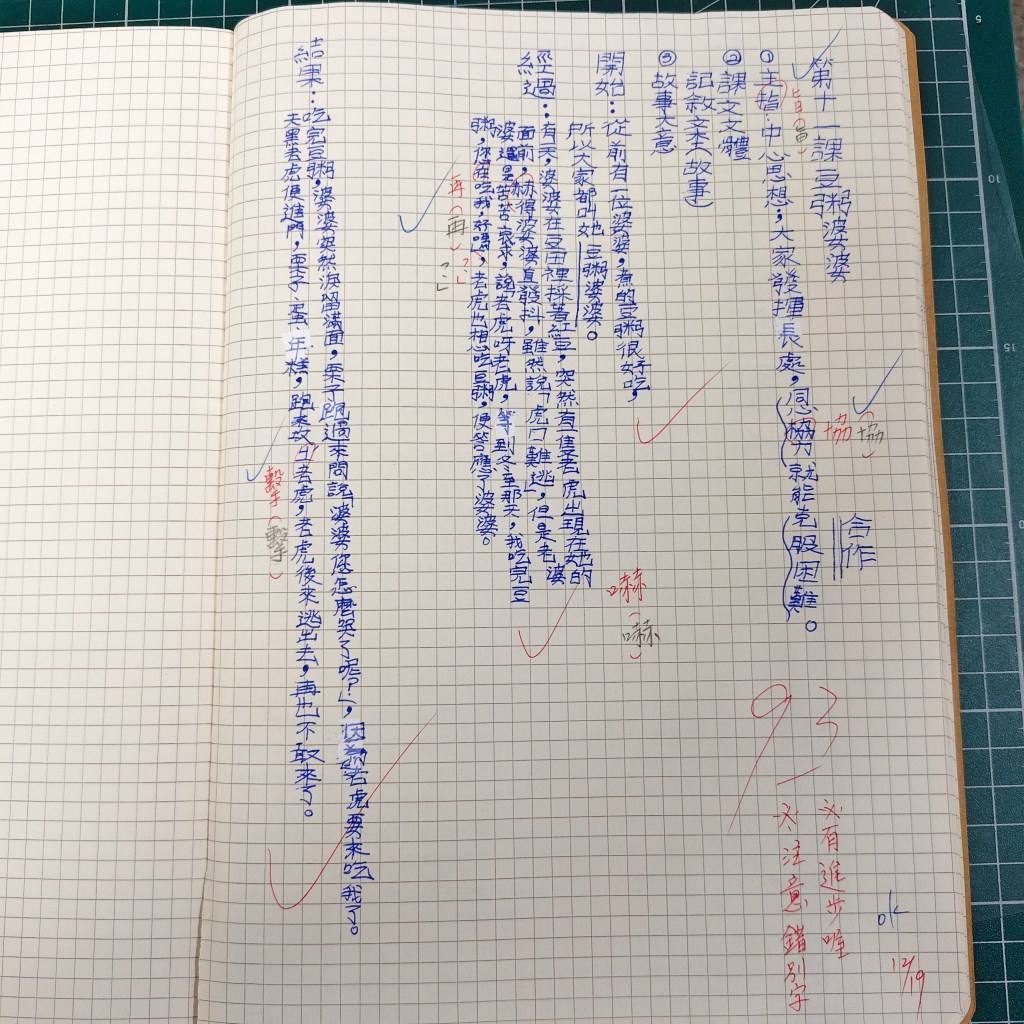 第十一課豆粥婆婆
①主指：中心思想：大家發揮長處，同協力就能克服困難。
旨(旨)
協(協)
合作
②課文文體
記敘文本(故事)
③故事大意
開始：從前有一位婆婆，煮的豆粥很好吃，
所以大家都叫她豆粥婆婆。
經過：有天，婆婆在豆田裡採著紅豆，突然有隻老虎出現在她的
面前，赫得婆婆直發抖，雖然說「虎口難逃」，但是老婆
婆還是苦苦哀求，說老虎呀老虎，等到冬至那天，我吃完豆
粥，您在吃我，好嗎，老虎也想吃豆粥，便答應了婆婆。
嚇(嚇)
再(再)
「?」
「?」
結果：吃完豆粥，婆婆突然淚留滿面，栗子跑過來問說「婆婆您怎麼哭了呢?」，因為老虎要來吃我了。
天黑老虎便進門，栗子、蛋、年糕，跑來攻擊老虎，老虎後來逃出去，再也不敢來了。
擊(擊)
93
必有進步喔
必注意錯別字
ok
12/19